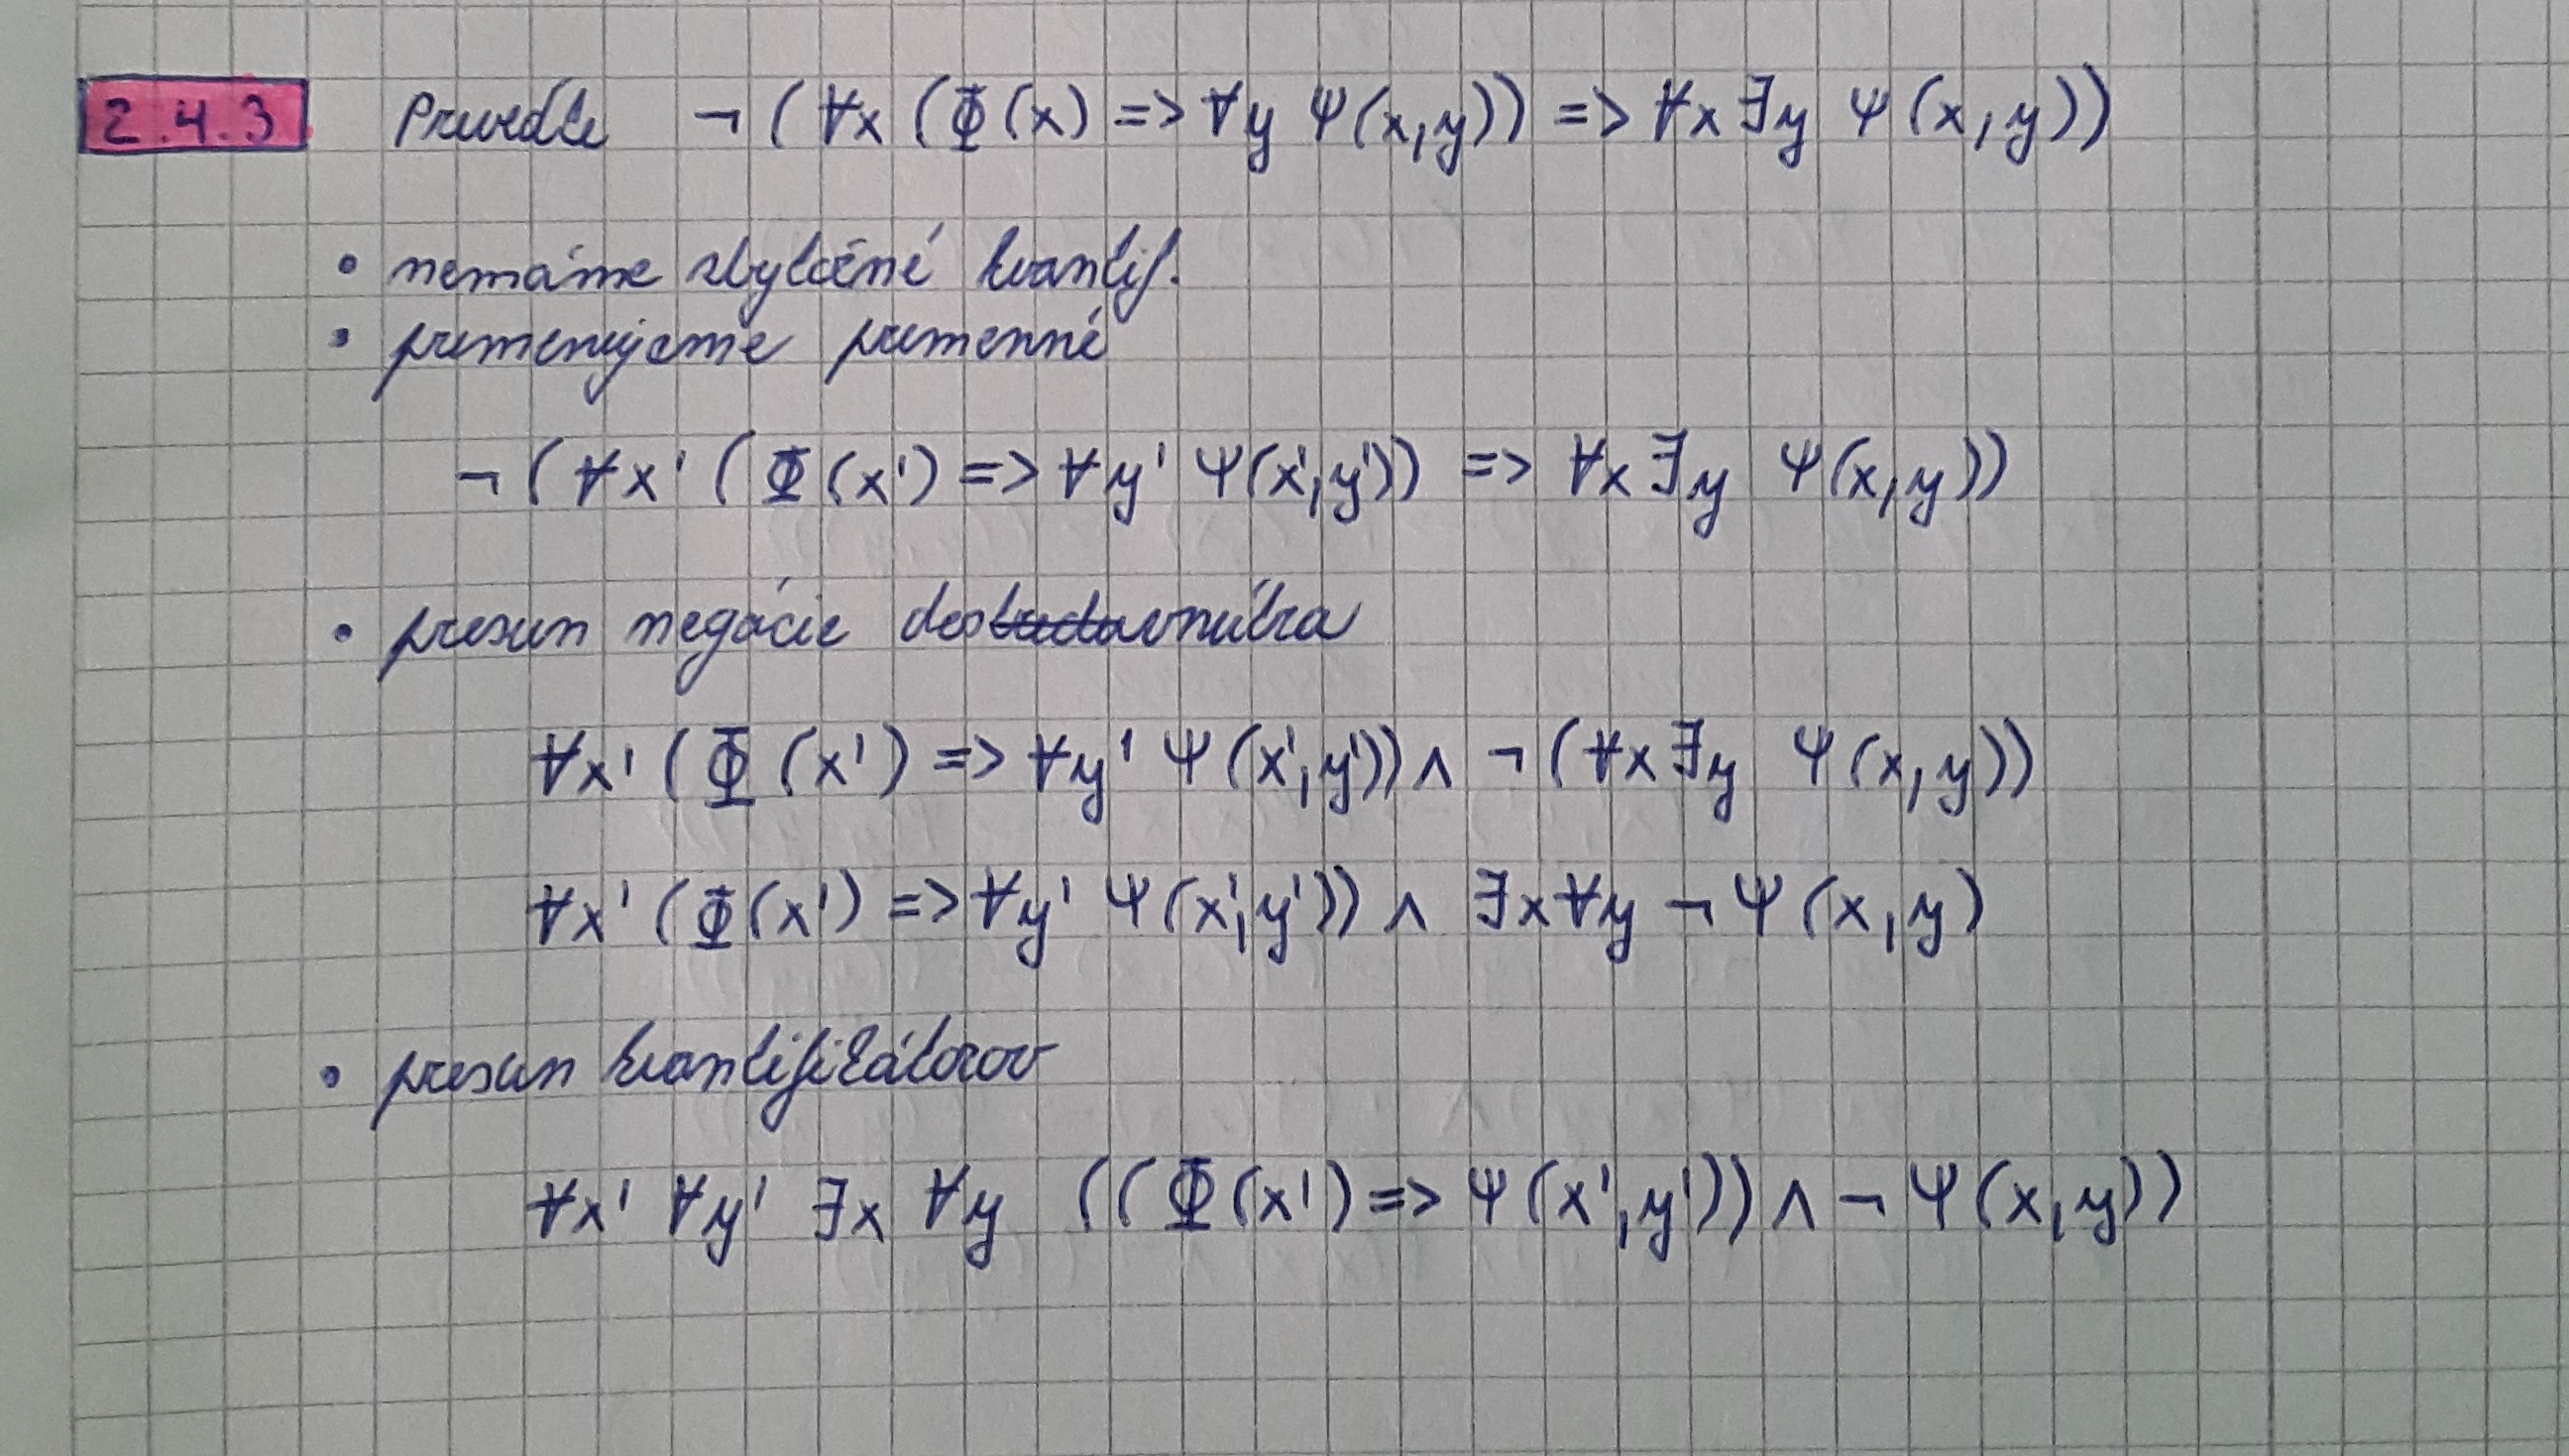 2.4.3 Preveďte ¬(∀x(Φ(x) => ∀y Ψ(x,y)) => ∀x∃y Ψ(x,y))
• nemáme zbytočné kvantif.
• premenujeme premenné
¬(∀x'(Φ(x') => ∀y' Ψ(x',y')) => ∀x∃y Ψ(x,y))
• presun negácie dovnútra
∀x'(Φ(x') => ∀y' Ψ(x',y')) ∧ ¬(∀x∃y Ψ(x,y))
∀x'(Φ(x') => ∀y' Ψ(x',y')) ∧ ∃x∀y ¬Ψ(x,y)
• presun kvantifikátorov
∀x' ∀y' ∃x ∀y ((Φ(x') => Ψ(x',y')) ∧ ¬Ψ(x,y))